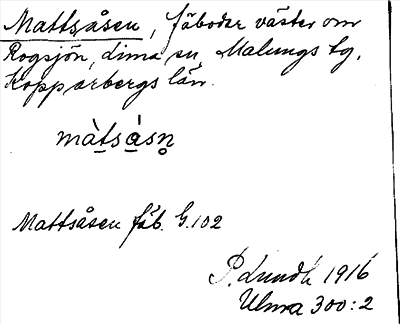 Mattsåsen, fäbodar väster om
Rogsjön, Lima sn, Malungs tg,
Kopparbergs län.
màtsásn̥
Mattsåsen fäb. G.102
P. Lundh 1916
Ulma 300:2